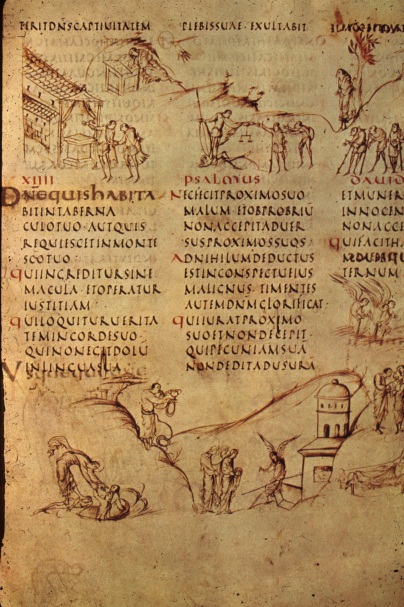 ERITDNSCAPTIUITATEM PLEBISSUAE·EXULTABIT
XIIII
DNEQUISHABITA
BITINTABERNA
CULOTUO·AUTQUIS
REQUIESCETINMONTE
SCOTUO
QUIINGREDITURSINE
MACULA·ETOPERATUR
IUSTITIAM
QUILOQUITURUERITA
TEMINCORDESUO·
QUINONEGITDOLU
INLINGUASUA
PSALMUS
NECFECITPROXIMOSUO
MALUM·ETOBPROBRIU
NONACCEPITADUER
SUSPROXIMOSSUOS
ADNIHILUMDEDUCTUS
ESTINCONSPECTUEIUS
MALIGNUS·TIMENTES
AUTEMDNMGLORIFICAT·
QUIIURATPROXIMO
SUOETNONDECEPIT·
QUIPECUNIAMSUA
NONDEDITADUSURA
DAUID
ETMUNER
INNOCEN
NONACCE
QUIFACITHA
TERNUM